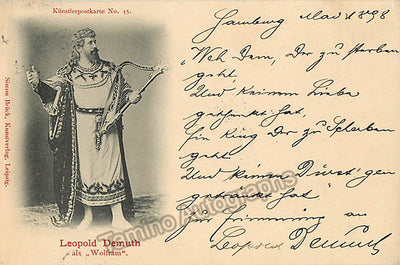 Künstlerpostkarte No. 15.
Simon Brück, Kunstverlag, Leipzig.
Leopold Demuth
als „Wolfram“.
Hamburg Mai 1898
„Weh Dem, Der zu sterben
geht,
Und keinem Liebe
geschenkt hat,
Ein Krug Der zu Scherben
geht
Und keinen Dürst'gen
getränkt hat“
Zur Erinnerung an
Leopold Demuth
Tamino Autographs